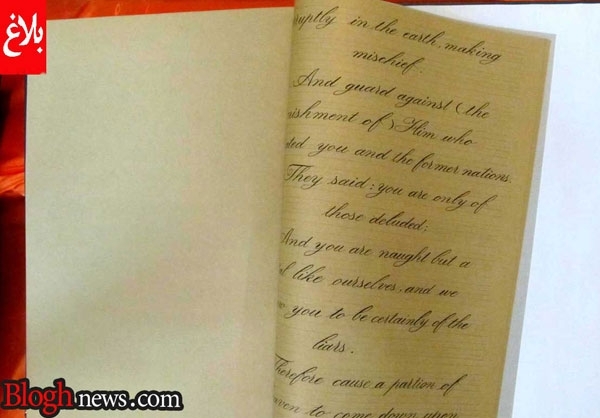 بلاغ
ruptly in the earth, making
mischief.
And guard against (the
ishment of) Him who
ted you and the former nations.
They said: you are only of
those deluded;
And you are naught but a
like ourselves, and we
you to be certainly of the
liars.
Therefore cause a partion of
to come down upon
Bloghnews.com